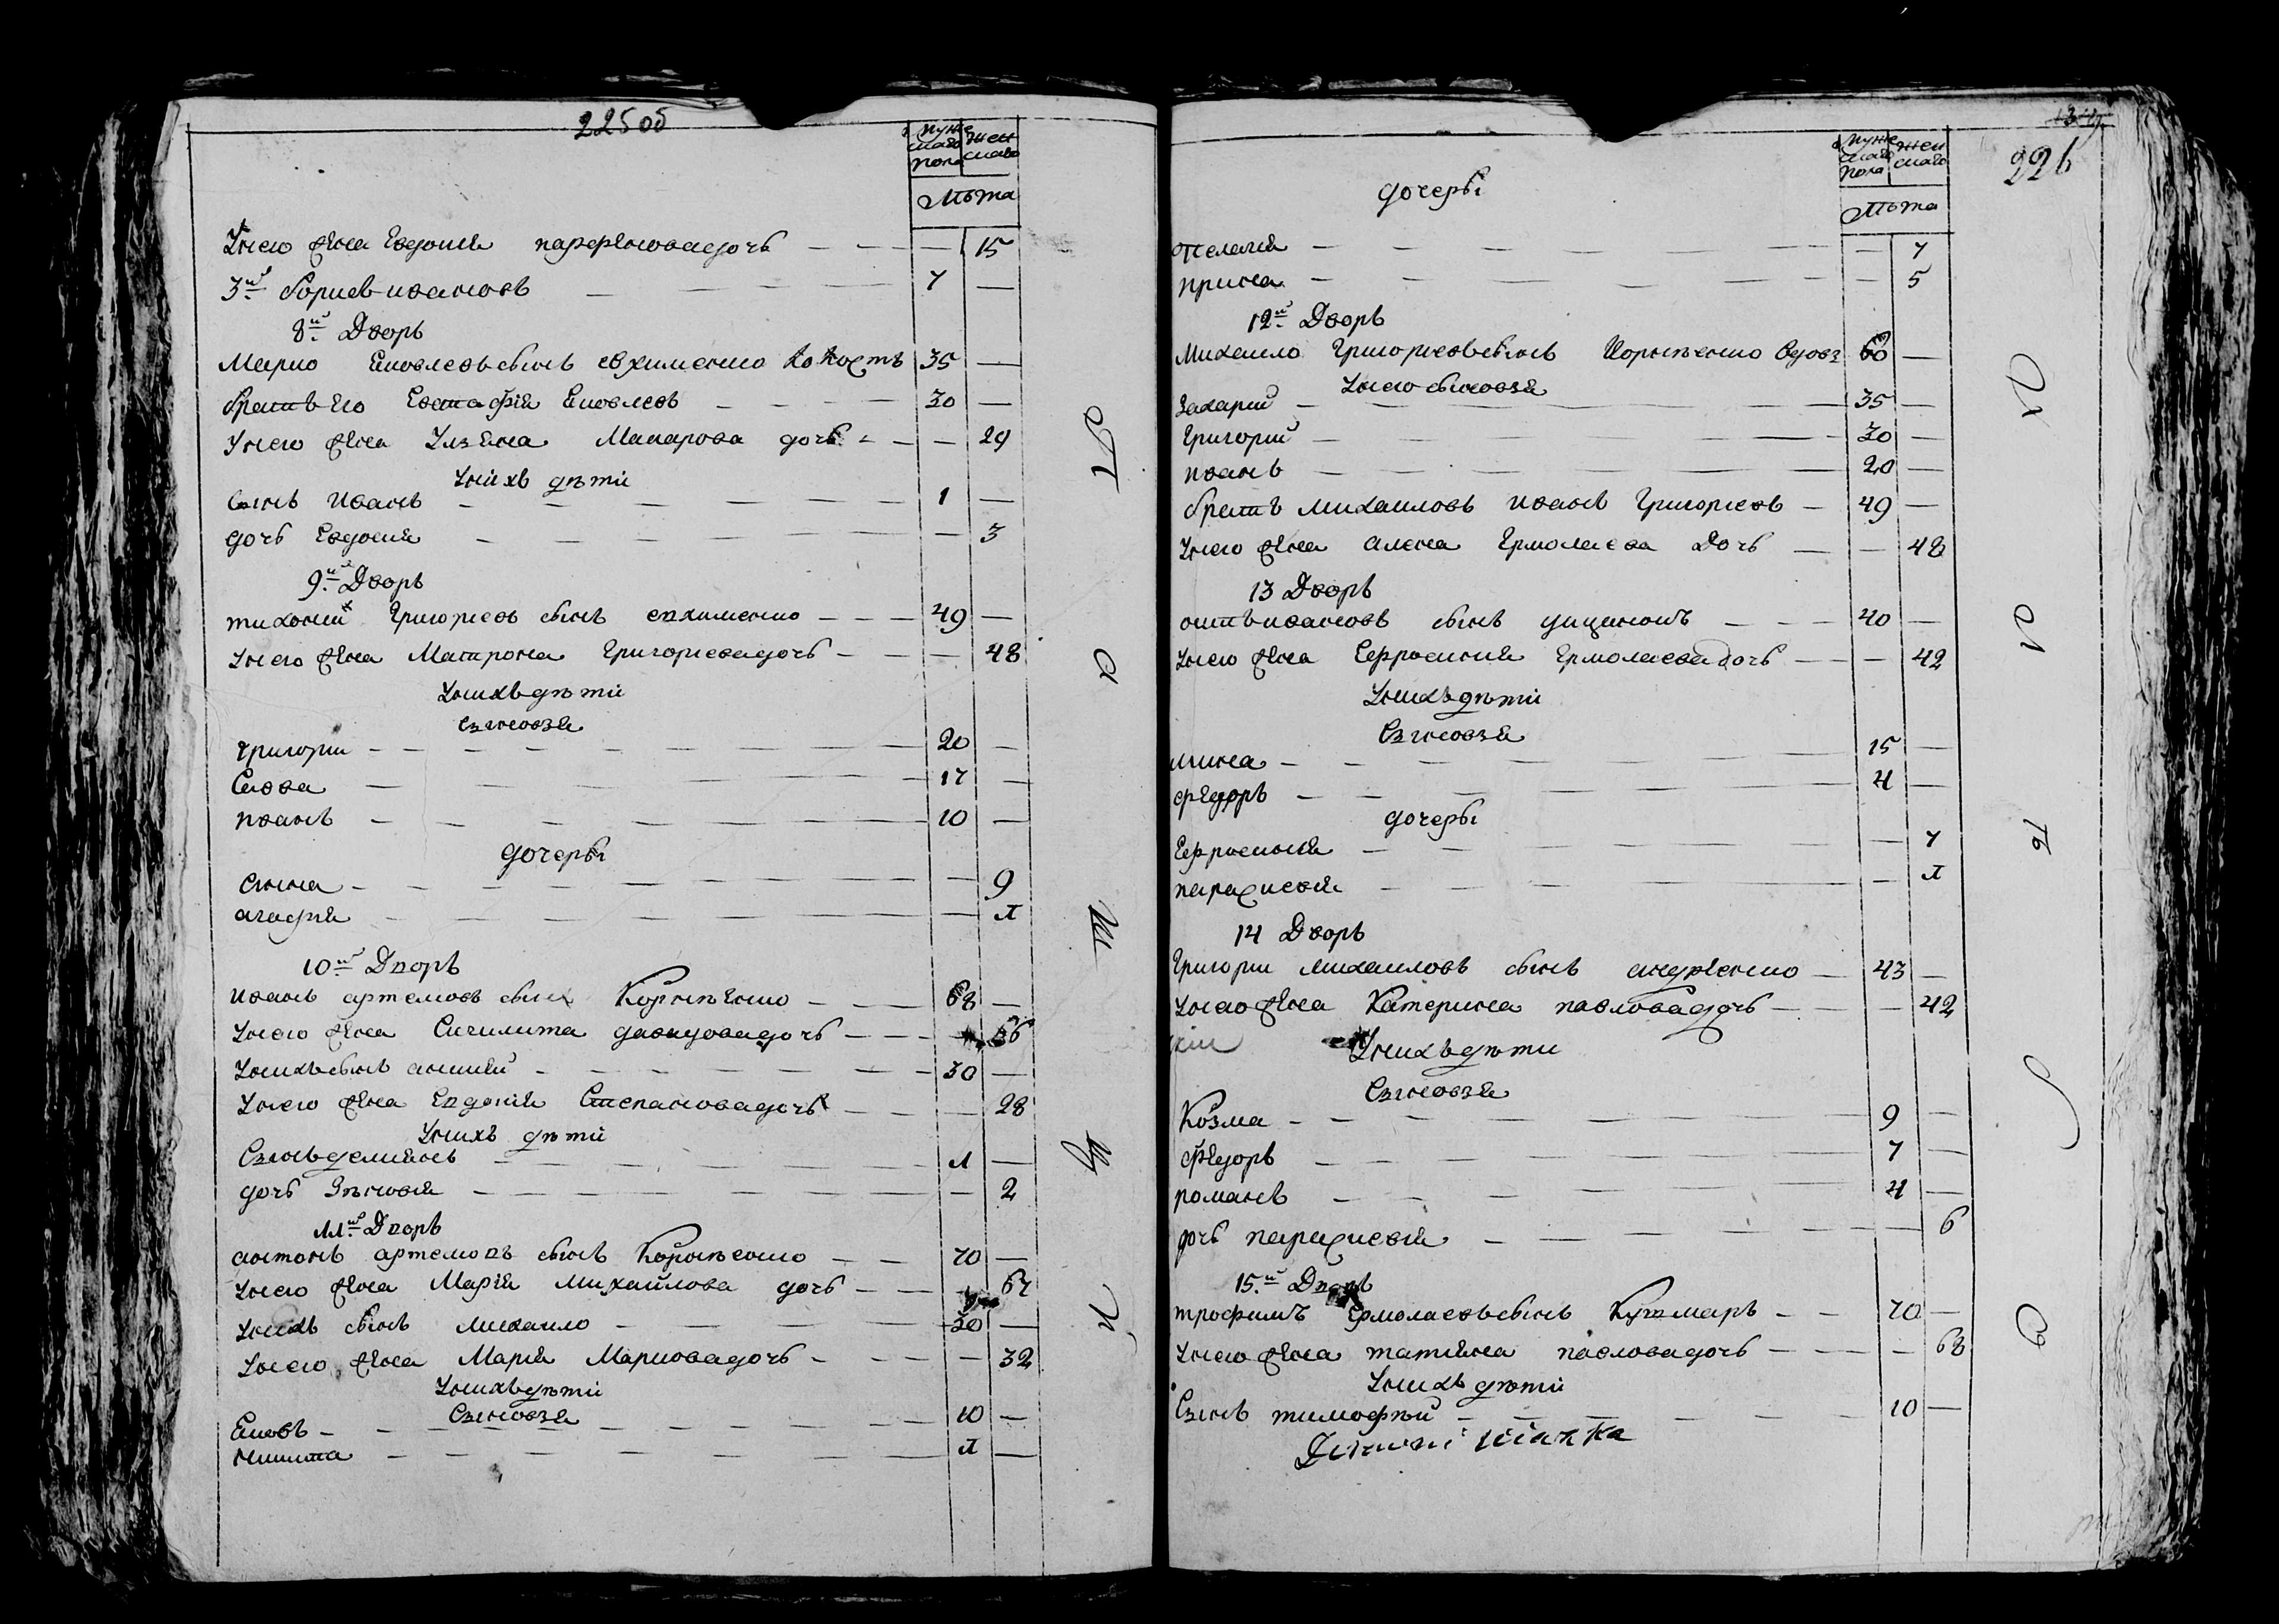 225 об
мужескаго пола
женскаго
лѣта
Унего жена Евдокия парфенова дочь — 15
3й борисъ ивановъ 7 —
8й Дворъ
Марко Яковлевъ сынъ евхименко 35 —
братъ его Евстафiя Яковлевъ 30 —
Унего жена Улзяна Макарова дочь — 29
Унихъ дѣти
сынъ иванъ 1 —
дочь Евдокия — 3
9й Дворъ
тихоний Григориевъ сынъ евхименко 49 —
Унего жена Матрона Григориева дочь — 48
Унихъ дѣти
Сзновзя
григории 20 —
Савва 17 —
иванъ 10 —
дочерьi
анна — 9
агафия — л
10й Дворъ
иванъ артемовъ сынъ Корнѣенко 68 —
Унего жена давидова дочь — 66
Унихъ сынъ 30 —
Унего жена Евдокiя Степанова дочь — 28
Унихъ дѣти
Сзнъ демиянъ л —
дочь Зѣновия — 2
11й Дворъ
антонъ артемовъ сынъ Корнѣенко 70 —
Унего жена Марiя Михайлова дочь — 67
Унихъ сынъ михаило 30 —
Унего жена Марiя Маркова дочь — 32
Унихъ дѣти
Сзновзя
Яковъ 10 —
Никита л —
226
мужескаго пола
женскаго
лѣта
дочерьi
Пелагия — 7
ирина — 5
12й Дворъ
Михаило Григориевъ сынъ Корнѣенко вдовз 60 —
Унего сыновзя
Захарий 35 —
Григорий 30 —
иванъ 20 —
братъ михаиловъ иванъ Григориевъ 49 —
Унего жена алена Ермолаева Дочь — 48
13 Дворъ
ивановъ сынъ 40 —
Унего жена Ефросиния Ермолаева дочь — 42
Унихъ дѣти
Сзновзя
мина 15 —
федоръ 4 —
дочерьi
Ефросиния — 7
парасковия — л
14 Дворъ
Григории михаиловъ сынъ андренко 43 —
Унего жена Катерина павлова дочь — 42
Унихъ дѣти
Сзновзя
Козма 9 —
федоръ 7 —
романъ 4 —
дочь парасковия — 6
15й Дворъ
трофимъ Ермолаевъ сынъ Кутмаръ 70 —
Унего жена татияна павлова дочь — 68
Унихъ дѣти
Сзнъ тимофѣй 10 —